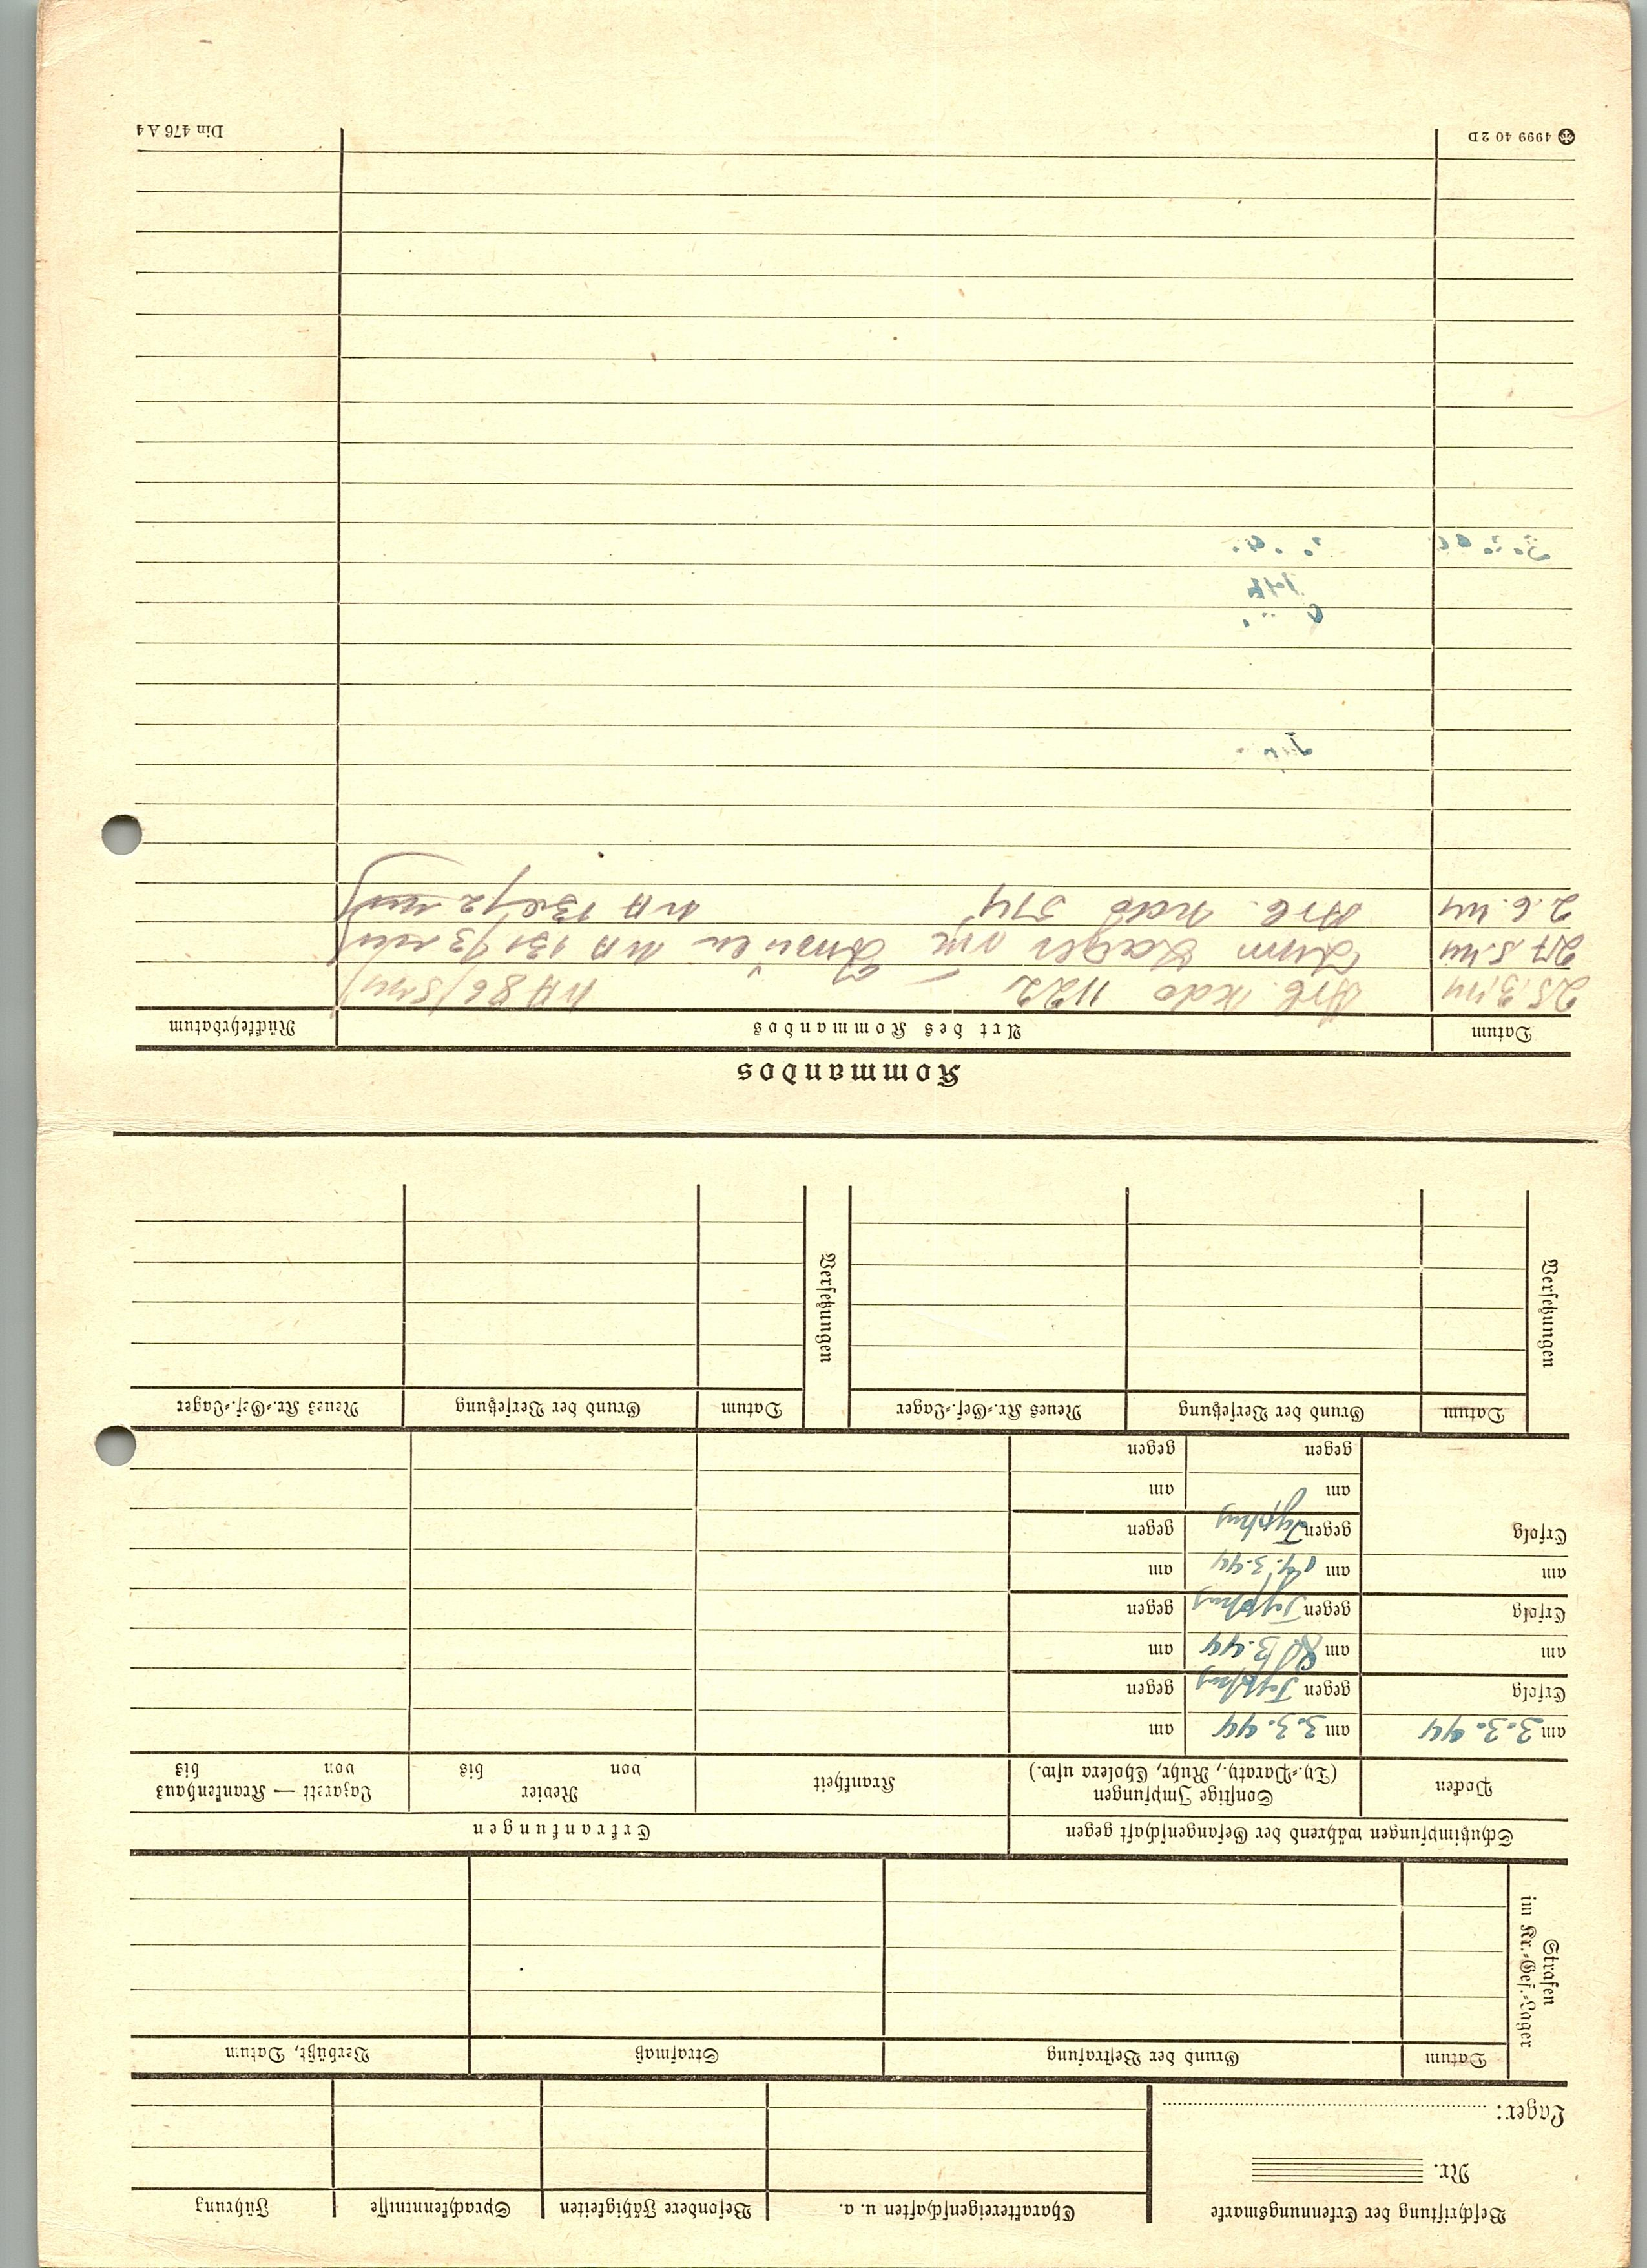 Beschriftung der Erkennungsmarke
Nr.
Lager:
Charaktereigenschaften u. a.
Besondere Fähigkeiten
Sprachkenntnisse
Führung
Strafen
im Kr.-Gef.-Lager
Datum
Grund der Bestrafung
Strafmaß
Verbüßt, Datum
Schutzimpfungen während der Gefangenschaft gegen
Erkrankungen
Pocken
Sonstige Impfungen
(Ty.-Paraty., Ruhr, Cholera usw.)
Krankheit
Revier
von bis
Lazarett — Krankenhaus
von bis
am 3.3.44
am 3.3.44
am
Erfolg
gegen Typhus
gegen
am
am 3.44
am
Erfolg
gegen Typhus
gegen
am
am 3.44
am
Erfolg
gegen Typhus
gegen
am
am
gegen
gegen
Versetzungen
Datum
Grund der Versetzung
Neues Kr.-Gef.-Lager
Versetzungen
Datum
Grund der Versetzung
Neues Kr.-Gef.-Lager
Kommandos
Datum
Art des Kommandos
Rückkehrdatum
25.3.44 Arb. Kdo 1122
27.5.44 Zum Lager
2.6.44 Arb. Kdo 514
4999 40 2D
Din 476 A4